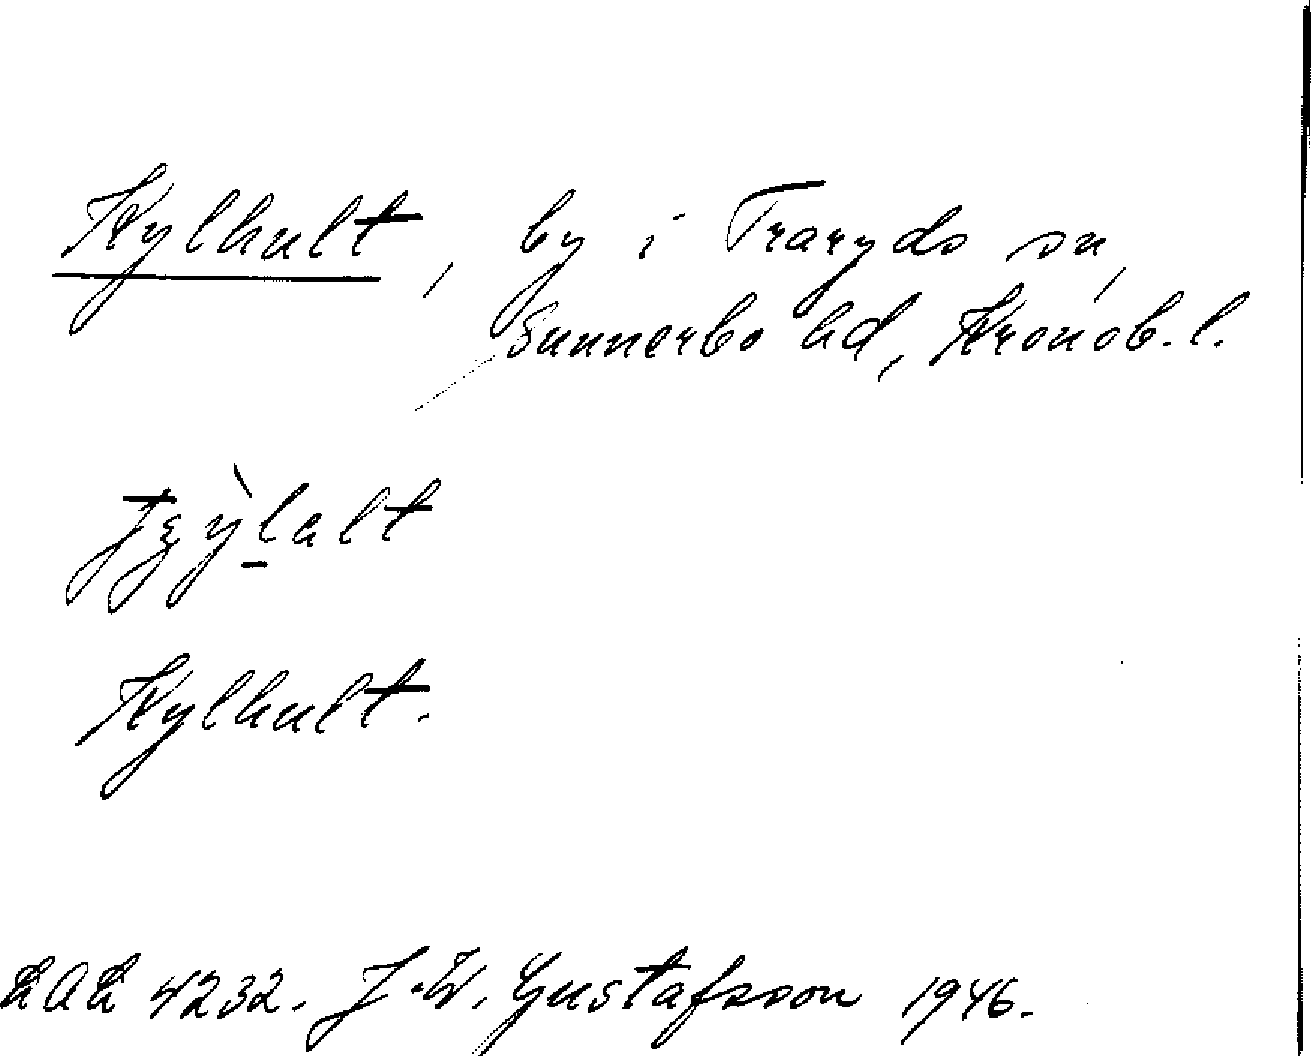 Kylhult, by i Traryds sn,
Sunnerbo hd, Kronob. l.
Kylhult.
LAL 4232. J. W. Gustafsson 1946.